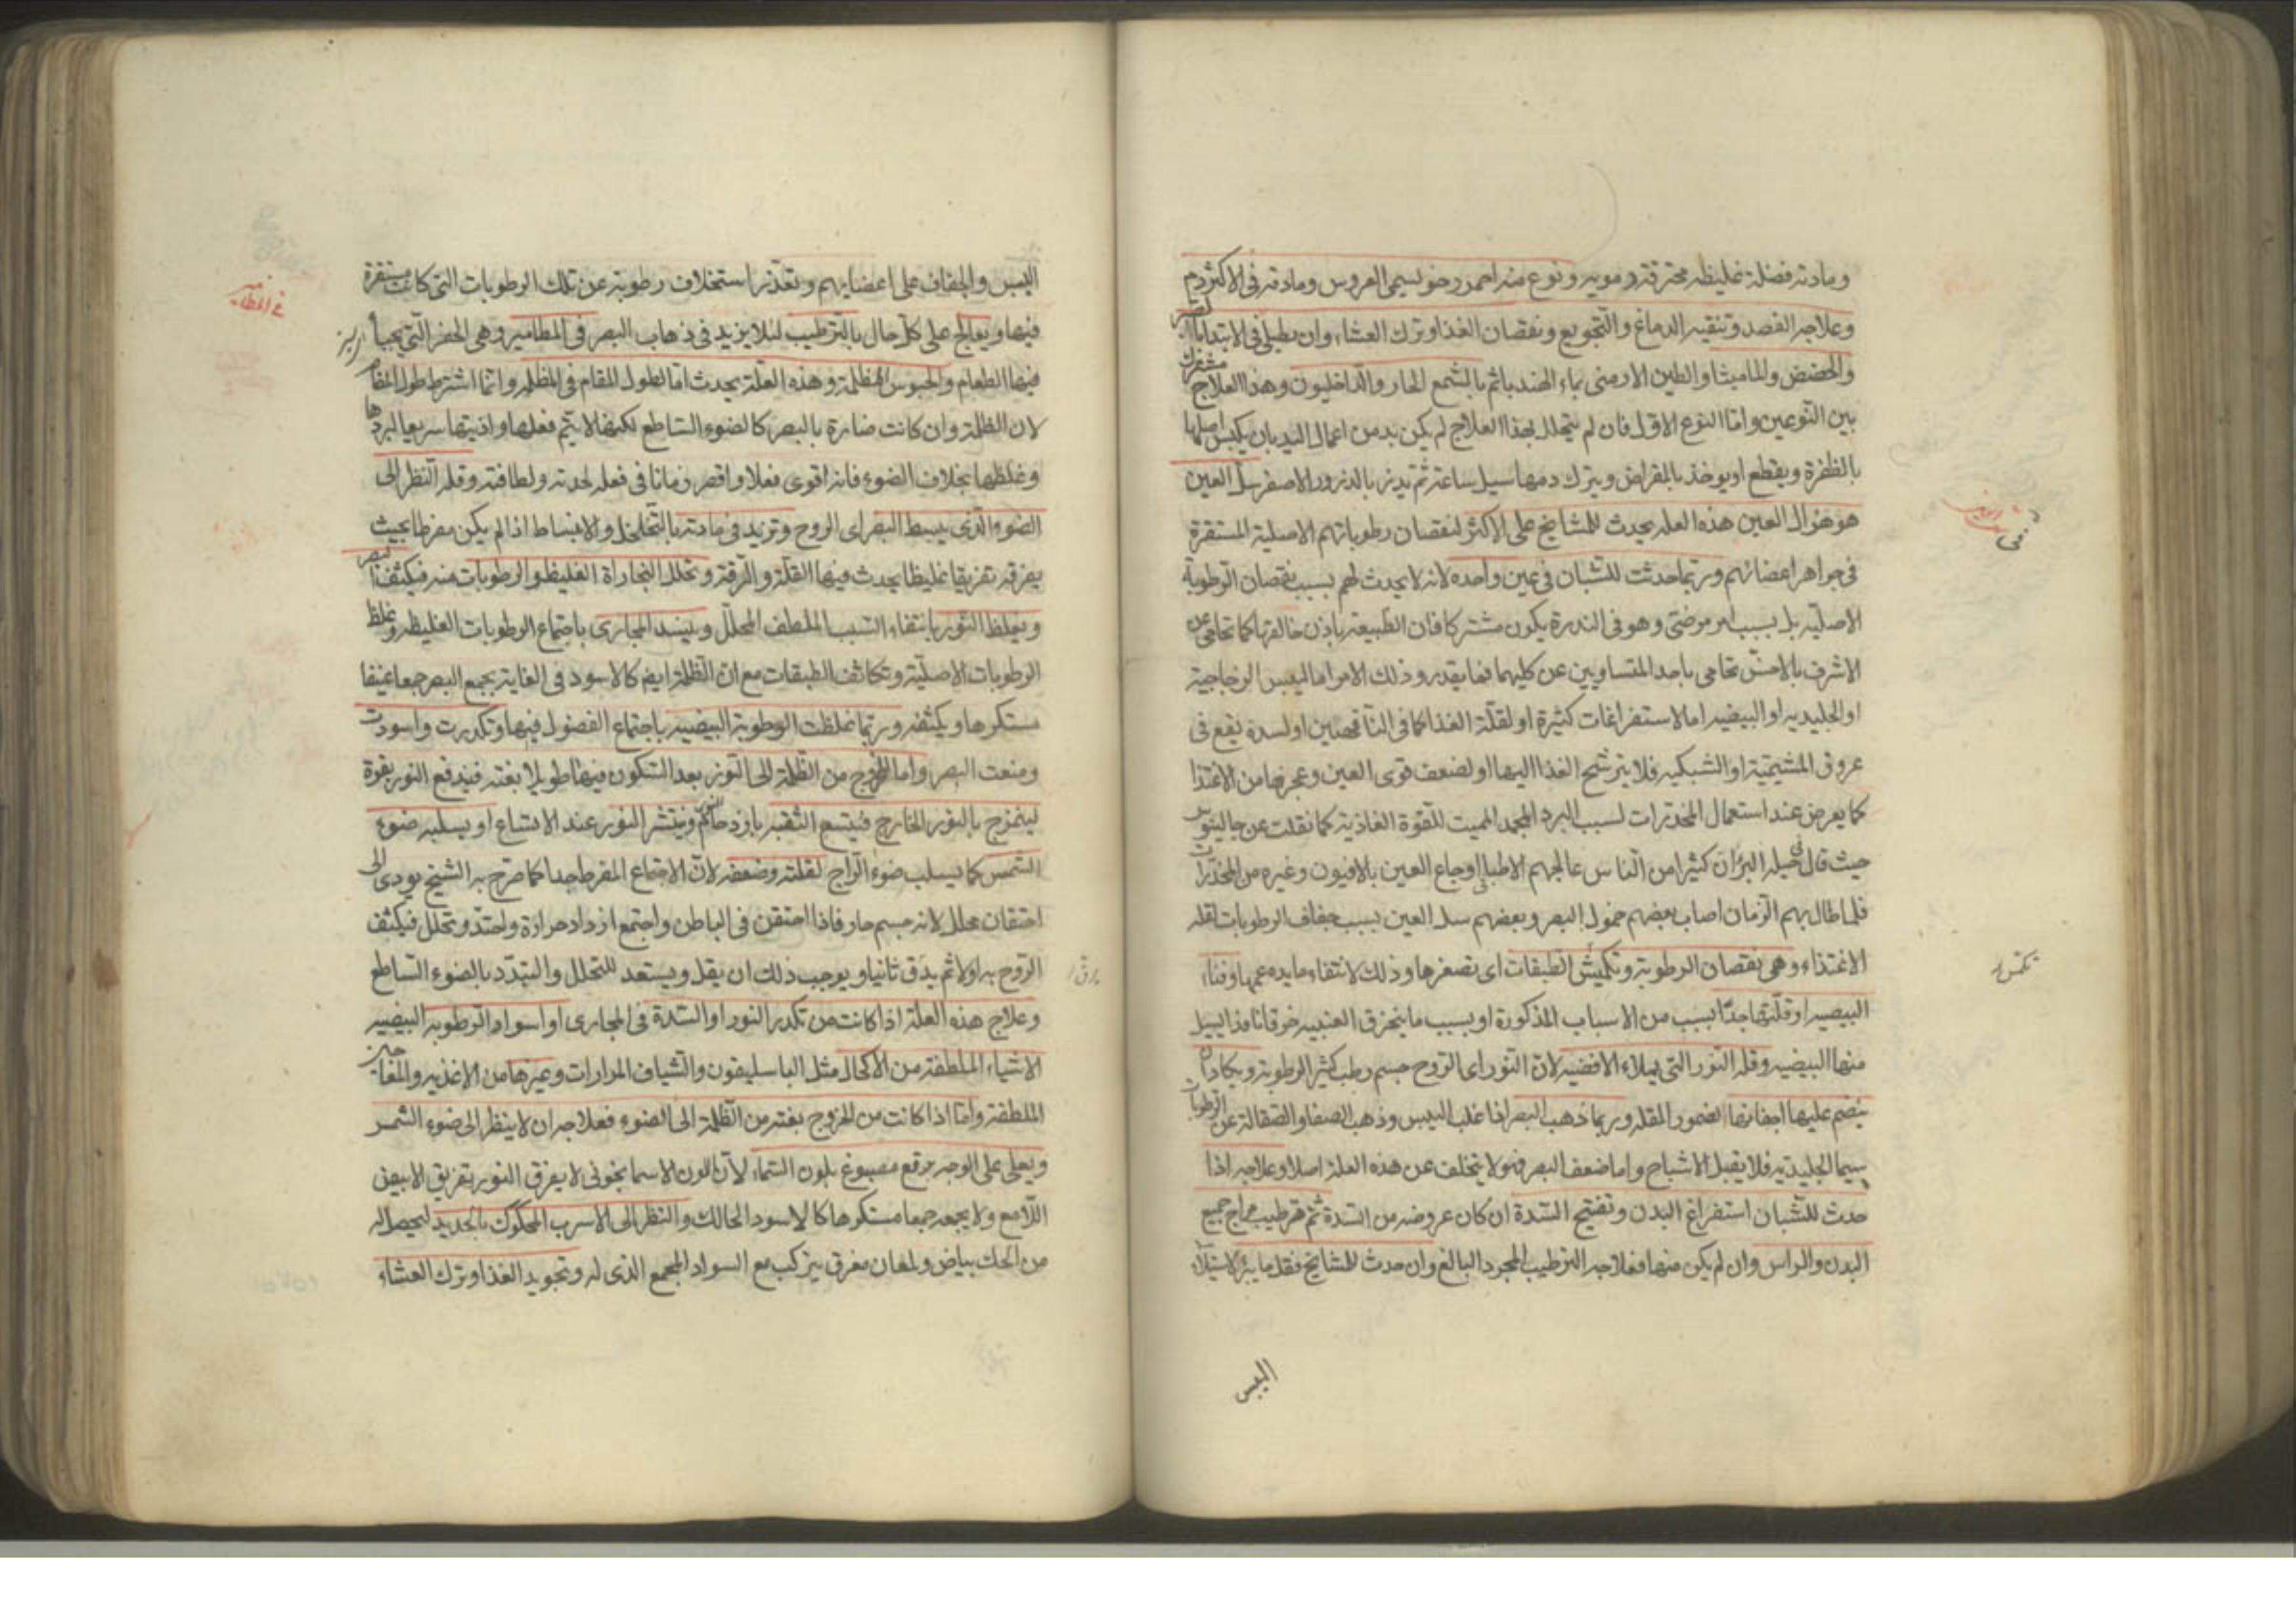 ومادته فضلة غليظه محترقة دمويه ونوع منه احمر رخو يسمى العروس ومادته فى الاكثر دم
وعلاجه الفصد وتنقيه الدماغ والتجويع ونقصان الغذا وترك العشاء وان يطلى فى الابتدا بالصبر
والحضض والماميثا والطين الارمنى بماء الهندبا ثم بالشمع الحار والداخليون وهذا العلاج مشترك
بين النوعين واما النوع الاول فان لم يتحلل بهذا العلاج لم يكن بد من اعمال اليد بان يكبس اصلها
بالظفرة ويقطع او يوخذ بالمقراض ويترك دمها يسيل ساعة ثم يذر بالذرور الاصفر سل العين
هو هزال العين هذه العله يحدث للمشايخ على الاكثر لنقصان رطوباتهم الاصلية المستقرة
فى جواهر اعضائهم وربما حدثت للشبان فى عين واحده لانه لا يحدث لهم بسبب نقصان الرطوبة
الاصليه بل بسبب امر مرضى وهو فى الندرة يكون مشتركا فان الطبيعه باذن خالقها كما تحامى عن
الاشرف بالاخس تحامى باحد المتساويين عن كليهما فما يقدر وذلك الامر اما اليبس الزجاجية
او الجليديه او البيضيه اما لاستفراغات كثيرة او لقلة الغذا كما فى الناقهين او لسدة يقع فى
عروق المشيمية او الشبكيه فلا يترشح الغذا اليها او لضعف قوى العين وعجزها من الاغتذا
كما يعرض عند استعمال المخدرات لسبب البرد المجمد المميت للقوة الغاذية كما نقلت عن جالينوس
حيث قال فى حيله البرء ان كثيرا من الناس عالجهم الاطبا اوجاع العين بالافيون وغيره من المخدرات
فلما طال بهم الزمان اصاب بعضهم خمول البصر وبعضهم سل العين بسبب جفاف الرطوبات لقله
الاغتذاء وهى نقصان الرطوبة وتكمش الطبقات اى تصغرها وذلك لانتفاء ما يدعمها وفناء
البيضيه او قلتها جدا بسبب من الاسباب المذكورة او بسبب ما ينخرق العنبيه خرقا نافذا يسيل
منها البيضيه وقله النور التى يملاء الافضيه لان النور اى الروح جسم رطب كثير الرطوبة ويكاد ان
ينضم عليها اجفانها لضمور المقله وربما ذهب البصر اذا غلب اليبس وذهب الصفا والصقالة عن الرطوبات
سيما الجليديه فلا يقبل الاشباح واما ضعف البصر فهو لا يتخلف عن هذه العلة اصلا وعلاجه اذا
حدث للشبان استفراغ البدن وتفتيح السدة ان كان عروضه من السدة ثم ترطيب مزاج جميع
البدن والراس وان لم يكن منها فعلاجه الترطيب المجرد البالغ وان حدث للمشايخ فقلما يبرؤ لاستيلاء
اليبس
تكمش
اليبس والجفاف على اعضايهم وتعذر استخلاف رطوبة عن تلك الرطوبات التى كانت مستقرة
فيها ويعالج على كل حال بالترطيب لئلا يزيد فى ذهاب البصر فى المطامير وهى الحفر التى يخبأ
فيها الطعام والحبوس المظلمة وهذه العلة يحدث اما لطول المقام فى المظلمه وانما اشترط طول المقام
لان الظلمة وان كانت ضارة بالبصر كالضوء الساطع لكنها لا يتم فعلها واذيتها سريعا لبردها
وغلظها بخلاف الضوء فانه اقوى فعلا واقصر زمانا فى فعله لحدته ولطافته وقله النظر الى
الضوء الذى يبسط البصر اى الروح وتزيد فى مادته بالتخلخل والانبساط اذا لم يكن مفرطا بحيث
يفرقه تفريقا غليظا يحدث فيها القلة والرقة وتحلل البخاراة الغليظه والرطوبات منه فيكثف البصر
ويغلظ النور بانتفاء السبب الملطف المحلل وينسد المجارى باجتماع الرطوبات الغليظه وغلظ
الرطوبات الاصلية وتكاثف الطبقات مع ان الظلمة ايضا كالاسود فى الغاية يجمع البصر جمعا عنيفا
مستكرها ويكثفه وربما غلظت الرطوبة البيضيه باجتماع الفضول فيها وتكدرت واسودت
ومنعت البصر واما الخروج من الظلمة الى النور بعد السكون فيها طويلا بغتة فيندفع النور بقوة
ليمتزج بالنور الخارج فيتسع الثقبه بازدحامه وينتشر النور عند الاتساع او يسلبه ضوء
الشمس كما يسلب ضوء السراج لقلته وضعفه لان الاجتماع المفرط جدا كما صرح به الشيخ يودى الى
احتقان محلل لانه جسم حار فاذا احتقن فى الباطن واجتمع ازداد حرارة واحتد وتحلل فيكثف
الروح به اولا ثم يدق ثانيا ويوجب ذلك ان يقل ويستعد للتحلل والتبدد بالضوء الساطع
وعلاج هذه العلة اذا كانت من تكدر النور او السدة فى المجارى او اسوداد الرطوبه البيضيه
الاشياء الملطفة من الاكحال مثل الباسليقون والشياف المرارات وغيرها من الاغذيه والمعاجين
الملطفة واما اذا كانت من الخروج بغتة من الظلمة الى الضوء فعلاجه ان لا ينظر الى ضوء الشمس
ويعلى على الوجه برقع مصبوغ بلون السماء لان اللون الاسمانجونى لا يفرق النور تفريق الابيض
اللامع ولا يجمعه جمعا مستكرها كالاسود الحالك والنظر الى الاسرب المحكوك بالحديد ليحصل له
من الحك بياض ولمعان مفرق يتركب مع السواد المجمع الذى له وتجويد الغذا وترك العشاء